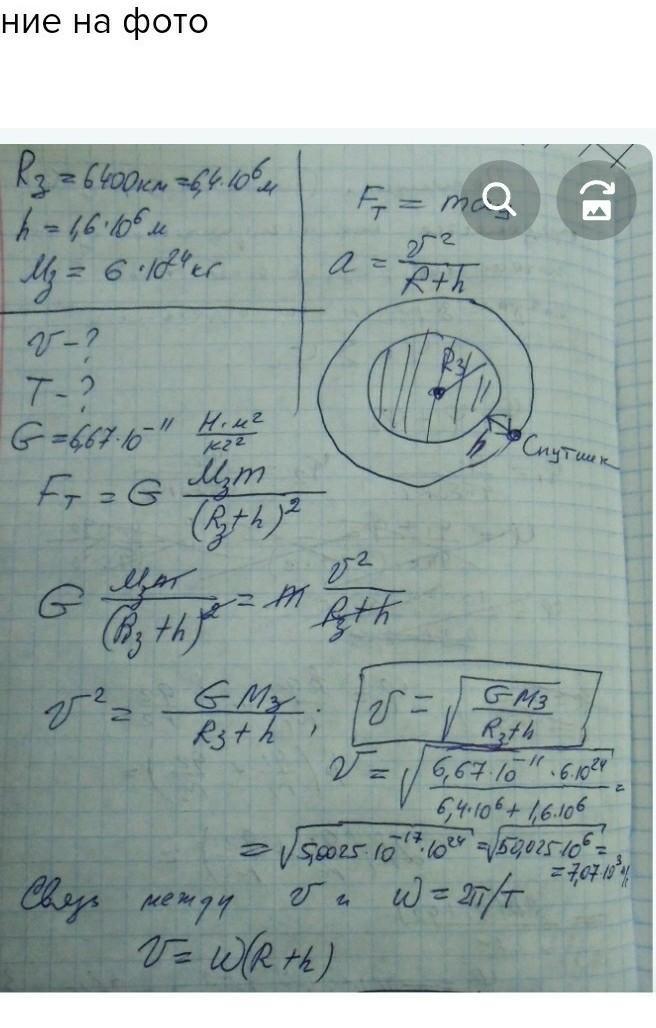 ние на фото
Rз = 6400км = 6,4·10⁶м
h = 1,6·10⁶м
Mз = 6·10²⁴кг
Fт = ma
a = v²/(R+h)
v - ?
T - ?
G = 6,67·10⁻¹¹ Н·м²/кг²
Rз
h
Спутник
Fт = G Mзm/(Rз+h)²
G Mзm/(Rз+h)² = m v²/(Rз+h)
v² = GMз/(Rз+h);
v = √(GMз/(Rз+h))
v = √((6,67·10⁻¹¹·6·10²⁴)/(6,4·10⁶+1,6·10⁶)) =
= √(5,0025·10⁻¹⁷·10²⁴) = √(50,025·10⁶) =
= 7,07·10³ м/
Связь между v и ω = 2π/T
v = ω(R+h)